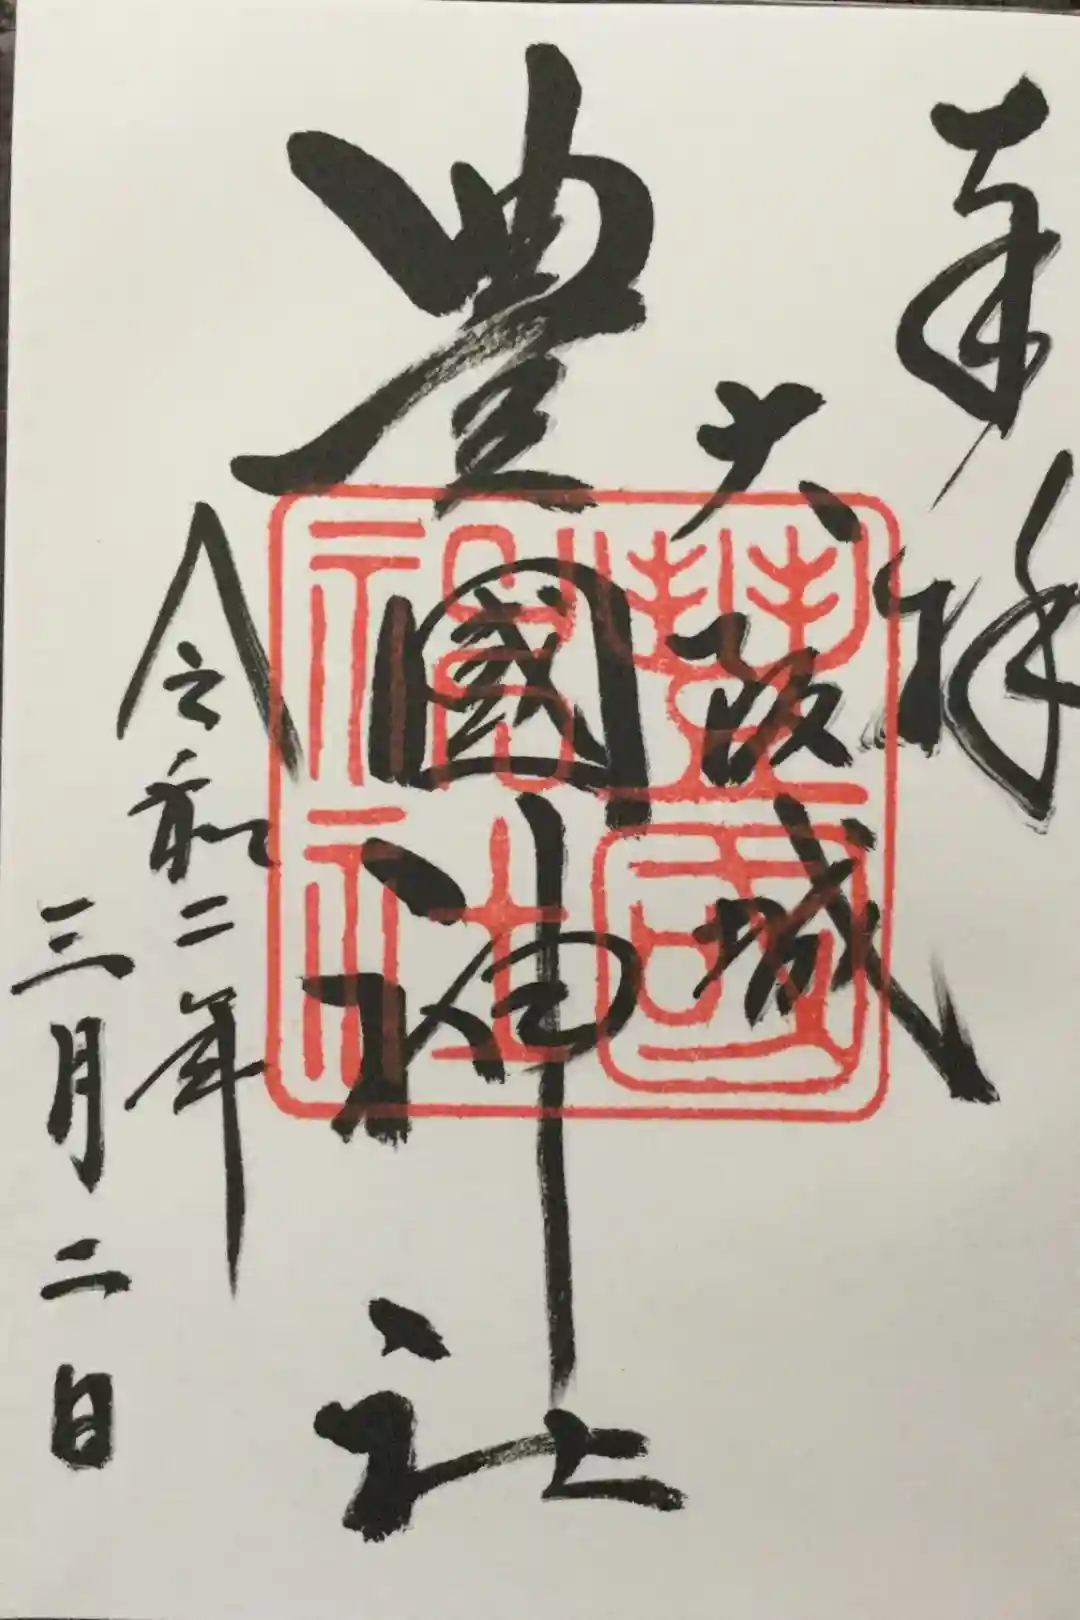 奉拝
大阪城
豊國神社
令和二年
三月二日
豊國神社